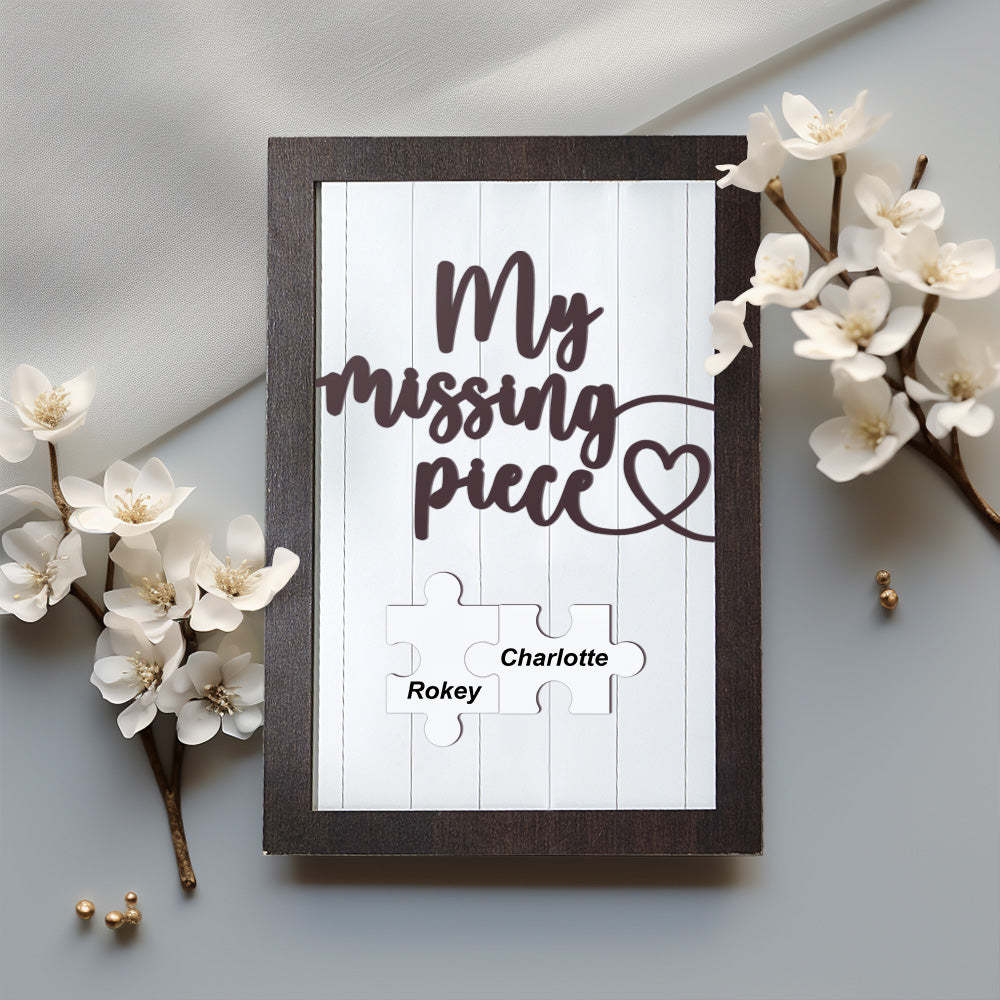 My
missing
piece
Charlotte
Rokey